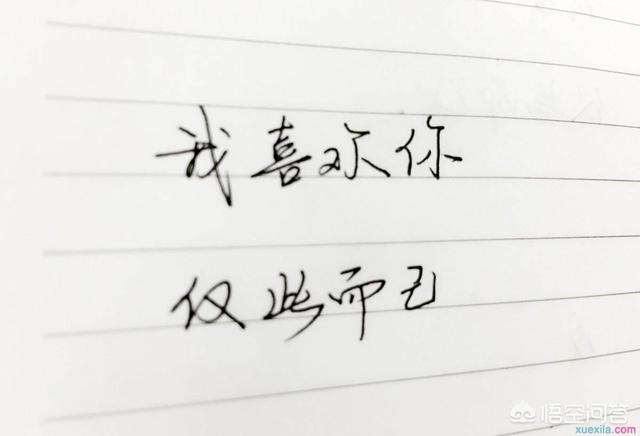 我喜欢你
仅此而已
悟空问答
xuexila.com